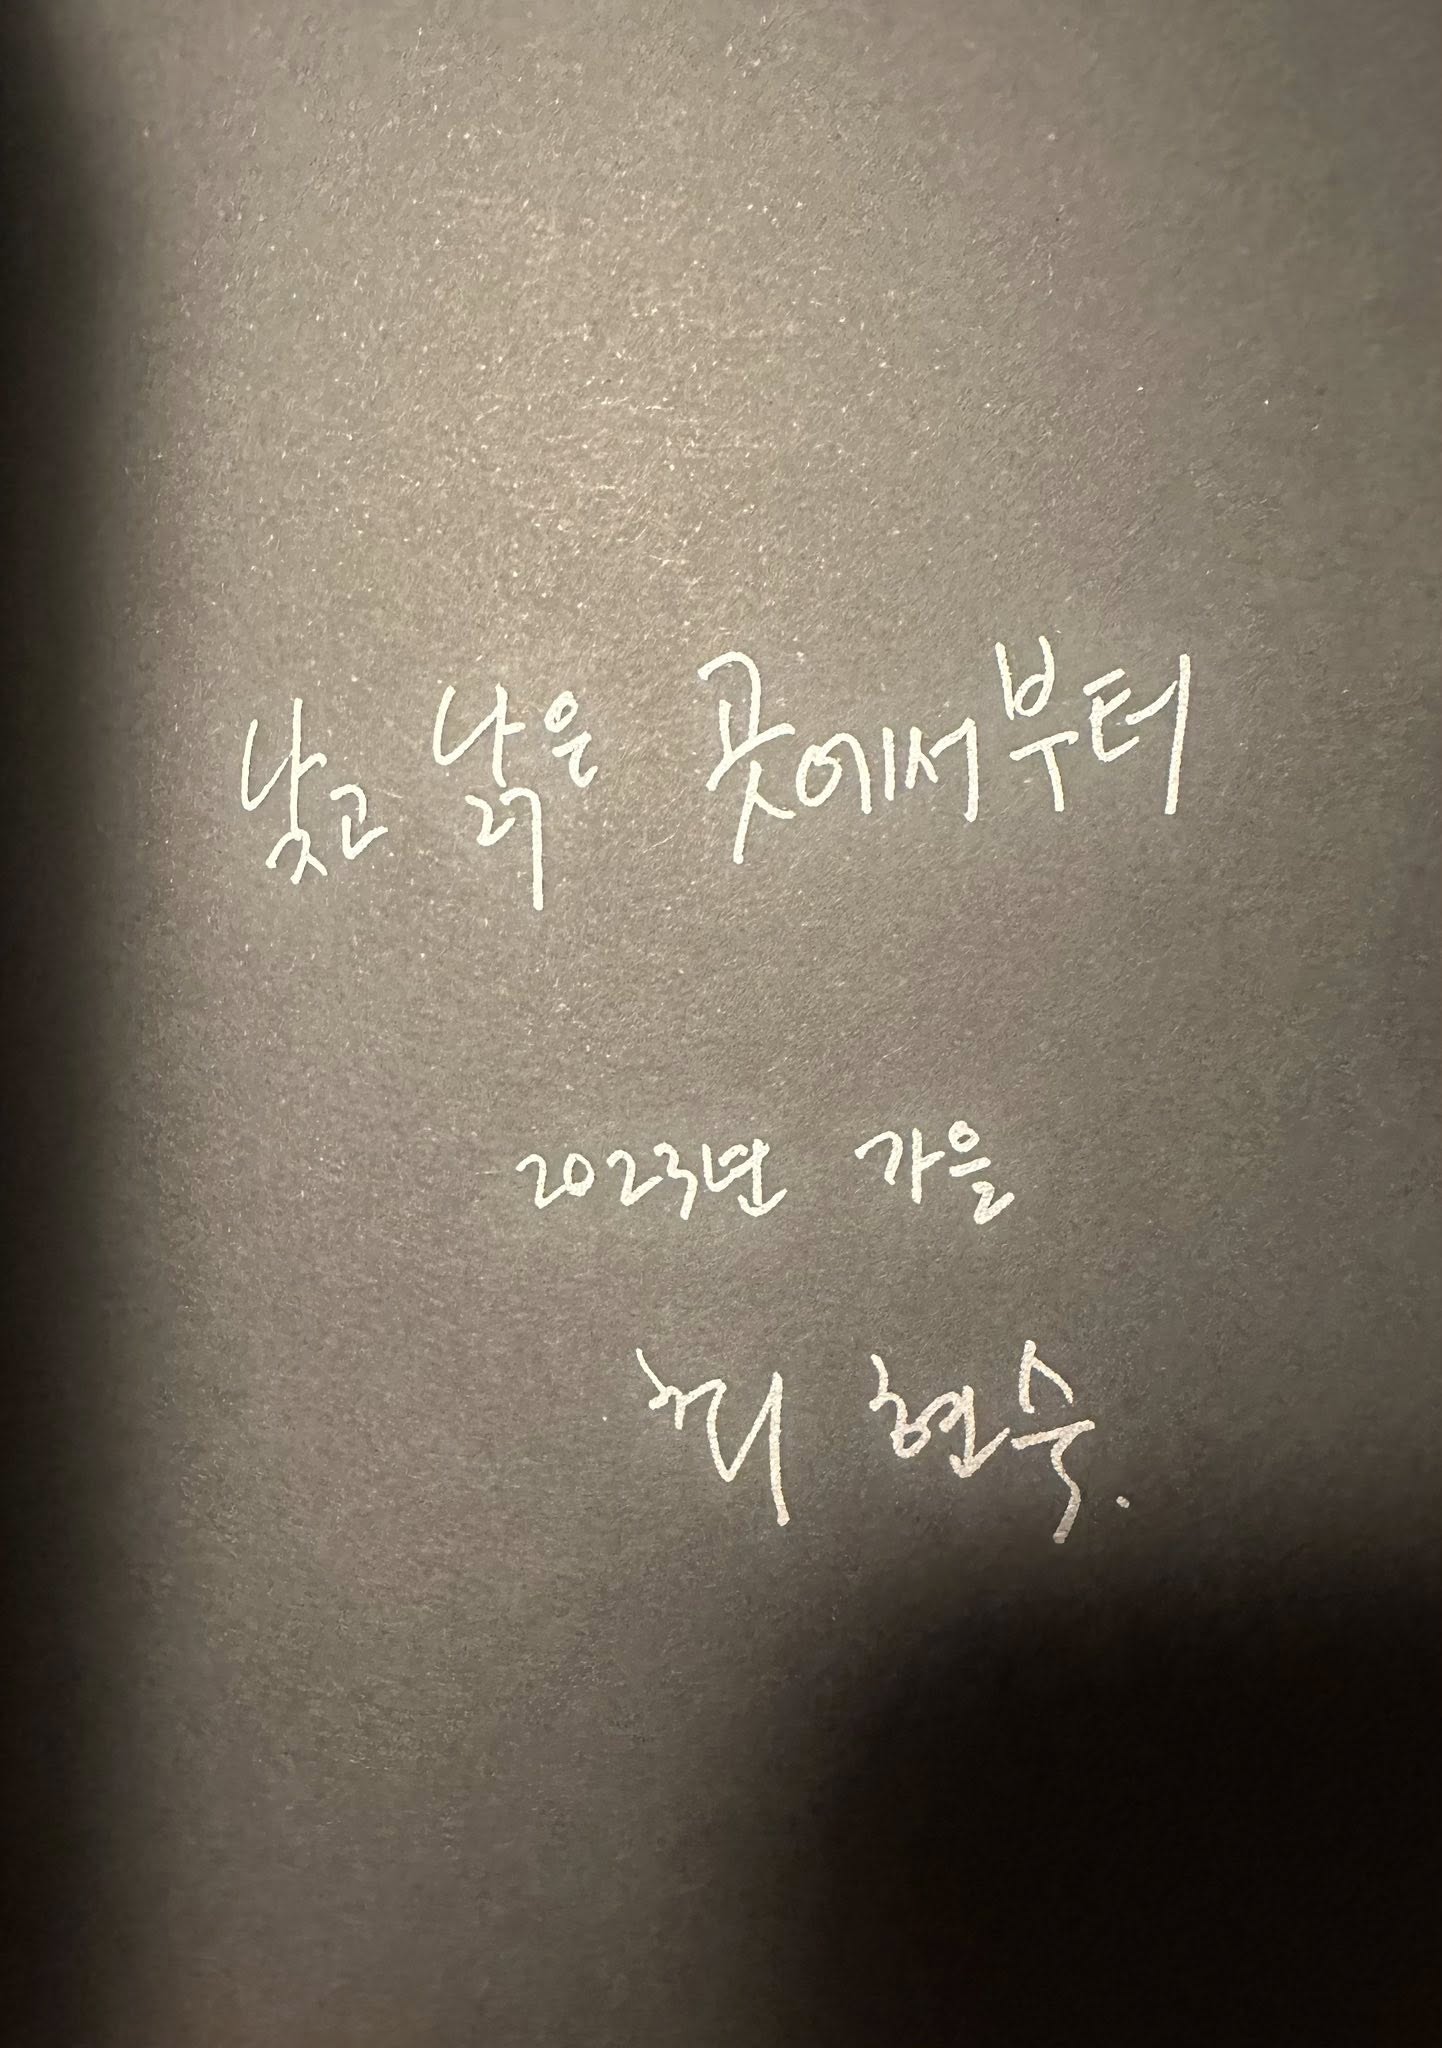 낮고 낡은 곳에서부터
2023년 가을
허 현숙.